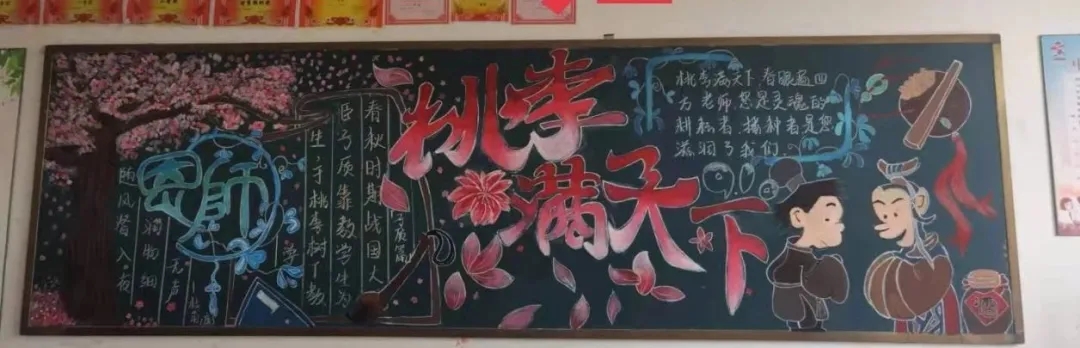 桃李满天下
恩師
春秋时期战国大
臣子质靠教学生为
生，于桃李树下教
随风潜入夜
润物细
无声
桃李满天下春暖遍四
方 老师 您是灵魂的
耕耘者 播种者是您
滋润了我们
9.10
酒